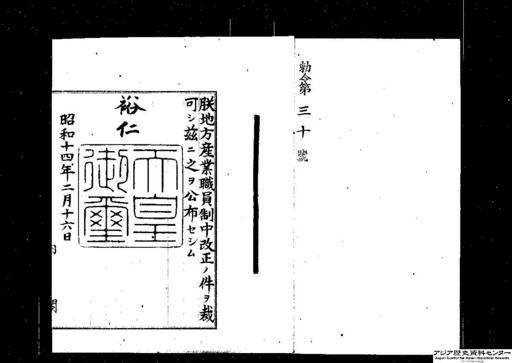 勅令第三十號
朕地方産業職員制中改正ノ件ヲ裁
可シ茲ニ之ヲ公布セシム
裕仁
天皇御璽
昭和十四年二月十六日
内閣
アジア歴史資料センター
Japan Center for Asian Historical Records